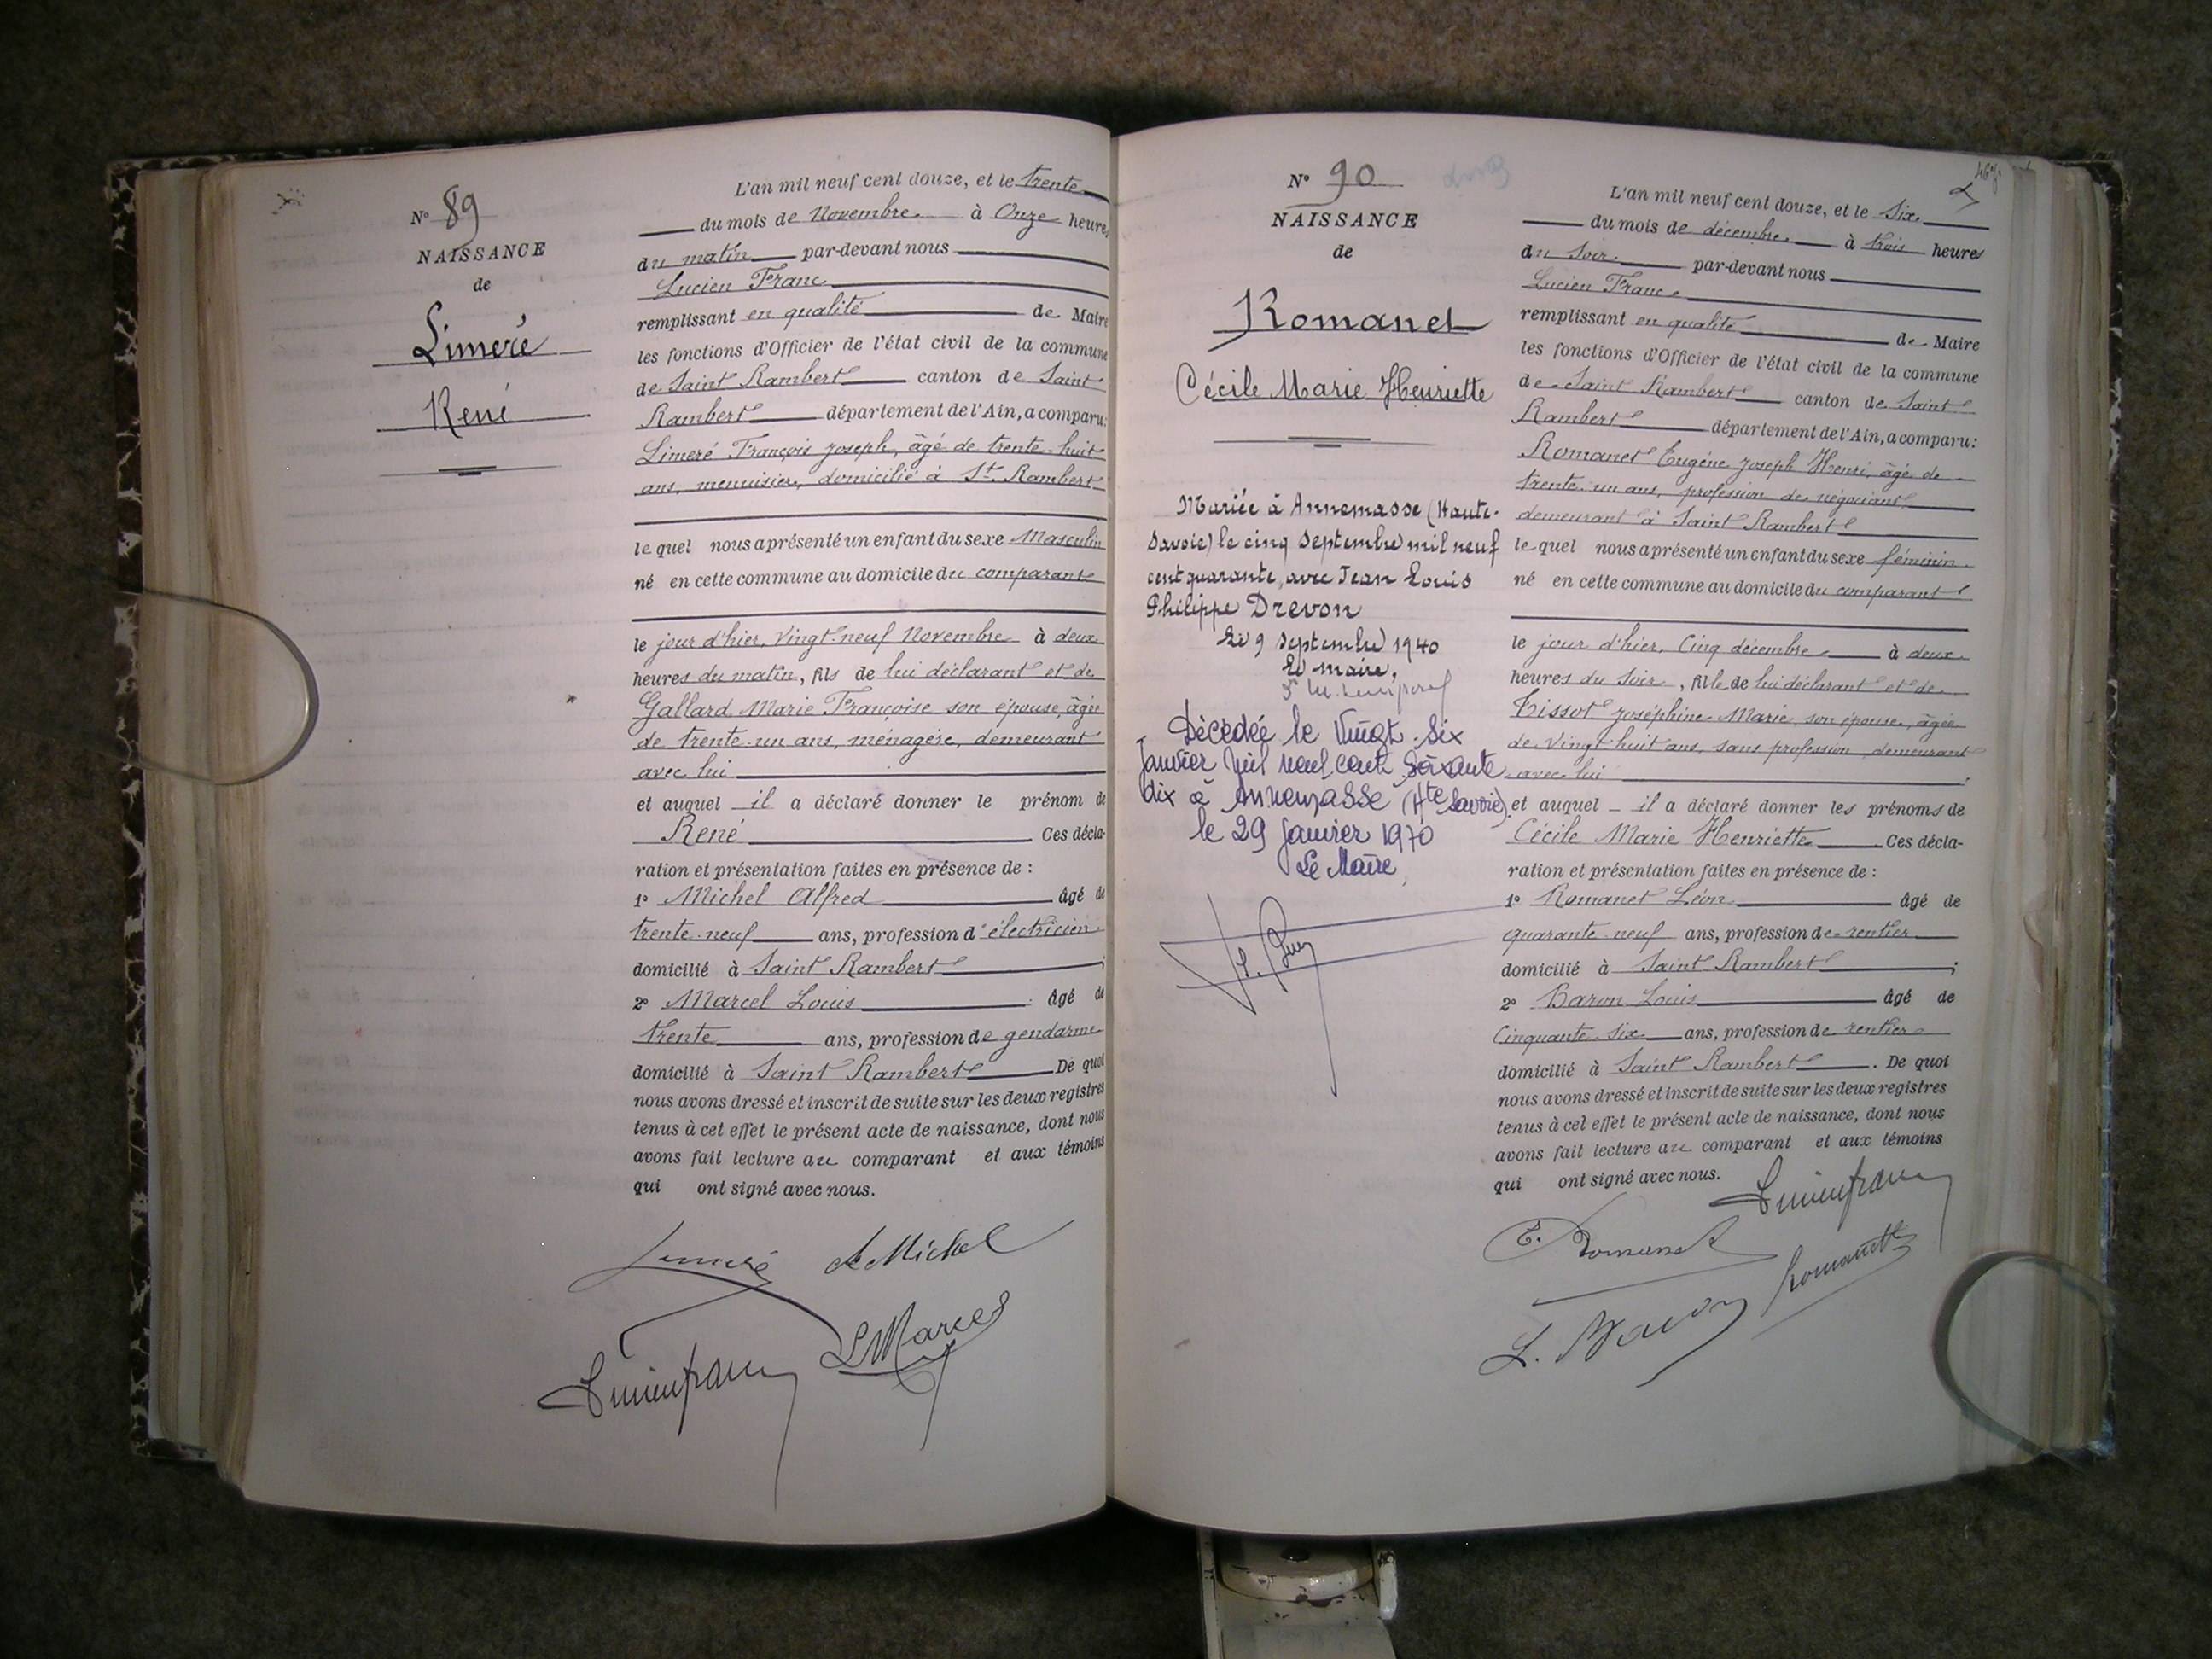 N° 89
NAISSANCE
de
Limeré
René
L'an mil neuf cent douze, et le trente
du mois de Novembre à Onze heures
du matin par-devant nous
Lucien Franc
remplissant en qualité de Maire
les fonctions d'Officier de l'état civil de la commune
de Saint Rambert canton de Saint
Rambert département de l'Ain, a comparu:
Limeré François Joseph, âgé de trente-huit
ans, menuisier, domicilié à St. Rambert
lequel nous a présenté un enfant du sexe Masculin
né en cette commune au domicile du comparant
le jour d'hier, Vingt-neuf Novembre à deux
heures du matin, fils de lui déclarant et de
Gallard Marie Françoise son épouse, âgée
de trente-un ans, ménagère, demeurant
avec lui
et auquel il a déclaré donner le prénom de
René Ces décla-
ration et présentation faites en présence de :
1° Michel Alfred âgé de
trente-neuf ans, profession d'électricien
domicilié à Saint Rambert ;
2° Marcel Louis âgé de
trente ans, profession de gendarme
domicilié à Saint Rambert De quoi
nous avons dressé et inscrit de suite sur les deux registres
tenus à cet effet le présent acte de naissance, dont nous
avons fait lecture au comparant et aux témoins
qui ont signé avec nous.
Limeré A Michel
Lucien franc L Marcel
N° 90
NAISSANCE
de
Romanet
Cécile Marie Henriette
Mariée à Annemasse (Haute-
Savoie) le cinq Septembre mil neuf
cent quarante, avec Jean Louis
Philippe Drevon
Le 9 Septembre 1940
Le maire,
Décédée le Vingt-Six
Janvier Mil neuf cent Soixante
dix à Annemasse (Hte Savoie).
le 29 Janvier 1970
Le Maire,
L'an mil neuf cent douze, et le Six
du mois de décembre à trois heures
du Soir par-devant nous
Lucien Franc
remplissant en qualité de Maire
les fonctions d'Officier de l'état civil de la commune
de Saint Rambert canton de Saint
Rambert département de l'Ain, a comparu:
Romanet Eugéne Joseph Henri, âgé de
trente-un ans, profession de négociant,
demeurant à Saint Rambert
lequel nous a présenté un enfant du sexe féminin.
né en cette commune au domicile du comparant
le jour d'hier, Cinq décembre à deux
heures du Soir, fille de lui déclarant et de
Tissot Joséphine Marie, son épouse, âgée
de Vingt huit ans, sans profession, demeurant
avec lui
et auquel il a déclaré donner les prénoms de
Cécile Marie Henriette Ces décla-
ration et présentation faites en présence de :
1° Romanet Léon âgé de
quarante-neuf ans, profession de rentier
domicilié à Saint Rambert ;
2° Baron Louis âgé de
Cinquante-Six ans, profession de rentier
domicilié à Saint Rambert. De quoi
nous avons dressé et inscrit de suite sur les deux registres
tenus à cet effet le présent acte de naissance, dont nous
avons fait lecture au comparant et aux témoins
qui ont signé avec nous.
Lucien franc
E. Romanet
Romanet
L. Baron